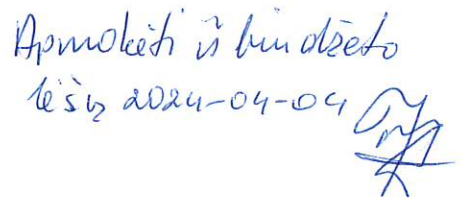 Apmokėti iš biudžeto
lėšų 2024-04-04